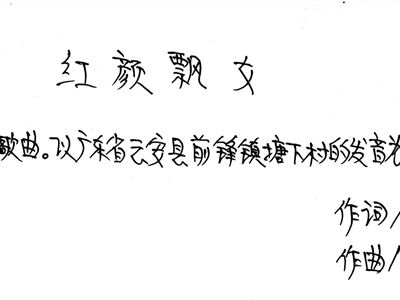 红颜飘女
歌曲。以广东省云安县前锋镇塘下村的发音为
作词/
作曲/